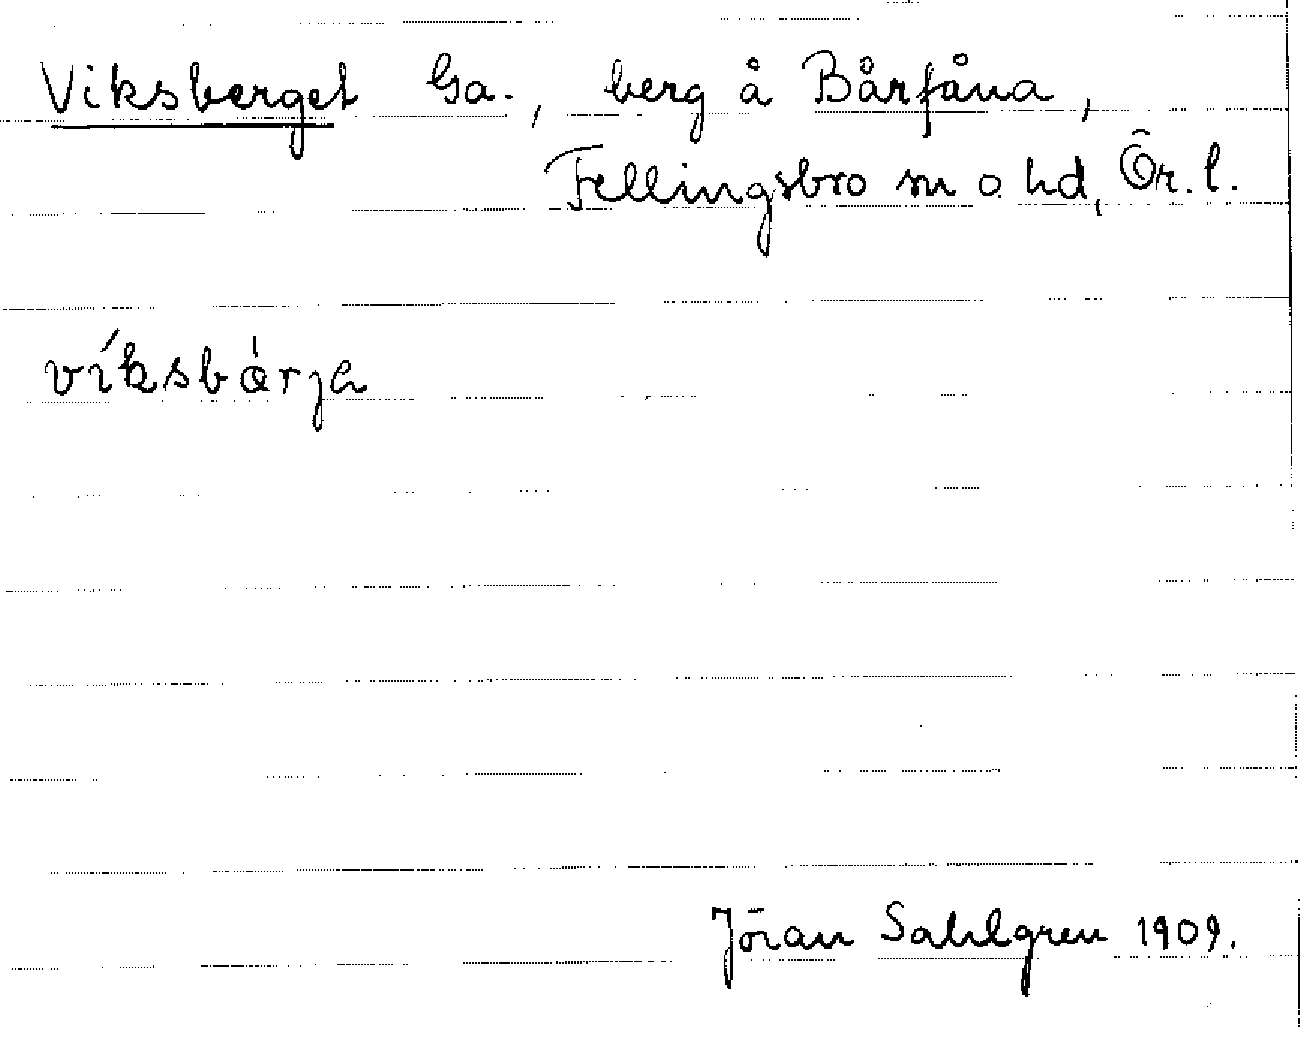 Viksberget Ga., berg å Bårfåna,
Fellingsbro sn o hd, Ör. l.
víksbàrja
Jöran Sahlgren 1909.